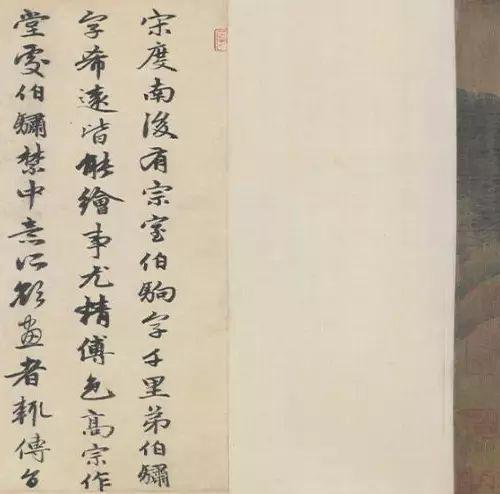 宋度南後有宗室伯駒字千里弟伯驌
字希遠皆能繪事尤精傅色高宗作
堂處伯驌禁中意所欲畫者輒傳旨